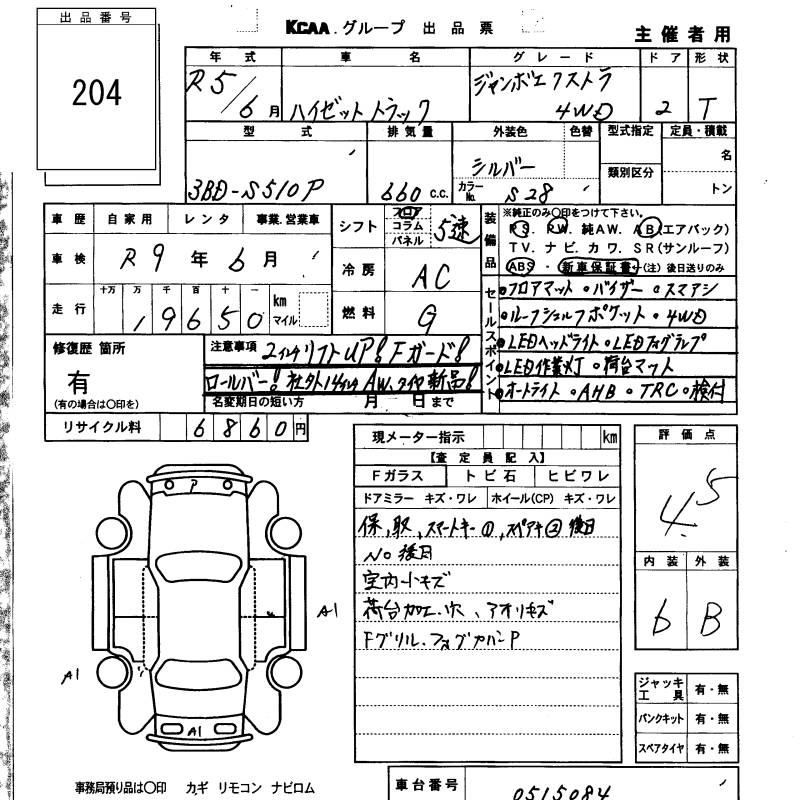 出品番号
204
KCAA.グループ 出品票
主催者用
年式 車名 グレード ドア 形状
R5/6月 ハイゼットトラック ジャンボエクストラ 4WD 2 T
型式 排気量 外装色 色替 型式指定 定員・積載
類別区分
名
トン
3BD-S510P 660 c.c. シルバー カラーNo. S28
車歴 自家用 レンタ 事業.営業車
車検 R9年6月
走行 十万 万 千 百 十 一
19650 km マイル
シフト フロア コラム パネル 5速
冷房 AC
燃料 G
装備品
※純正のみ○印をつけて下さい。
PS. PW. 純AW. AB(エアバック)
TV. ナビ. カワ. SR(サンルーフ)
ABS・新車保証書 (注) 後日送りのみ
セールスポイント
●フロアマット ●バイザー ●スマアシ
●ルーフシェルフポケット ●4WD
●LEDヘッドライト ●LEDフォグランプ
●LED作業灯 ●荷台マット
●オートライト ●AHB ●TRC ●検付
修復歴 箇所
有
(有の場合は○印を)
注意事項 2インチリフトUP! Fガード!
ロールバー! 社外14インチAW、タイヤ新品!
名変期日の短い方 月 日まで
リサイクル料 6860円
現メーター指示 km
【査定員記入】
Fガラス トビ石 ヒビワレ
ドアミラー キズ・ワレ ホイール(CP) キズ・ワレ
保、取、スマートキー①、スペアキ②後日
No後日
室内小キズ
荷台加工.穴、アオリキズ
Fグリル.フォグカバーP
評価点
4.5
内装 外装
6 B
P
A1
A1
A1
ジャッキ工具 有・無
パンクキット 有・無
スペアタイヤ 有・無
事務局預り品は○印 カギ リモコン ナビロム
車台番号 0515084